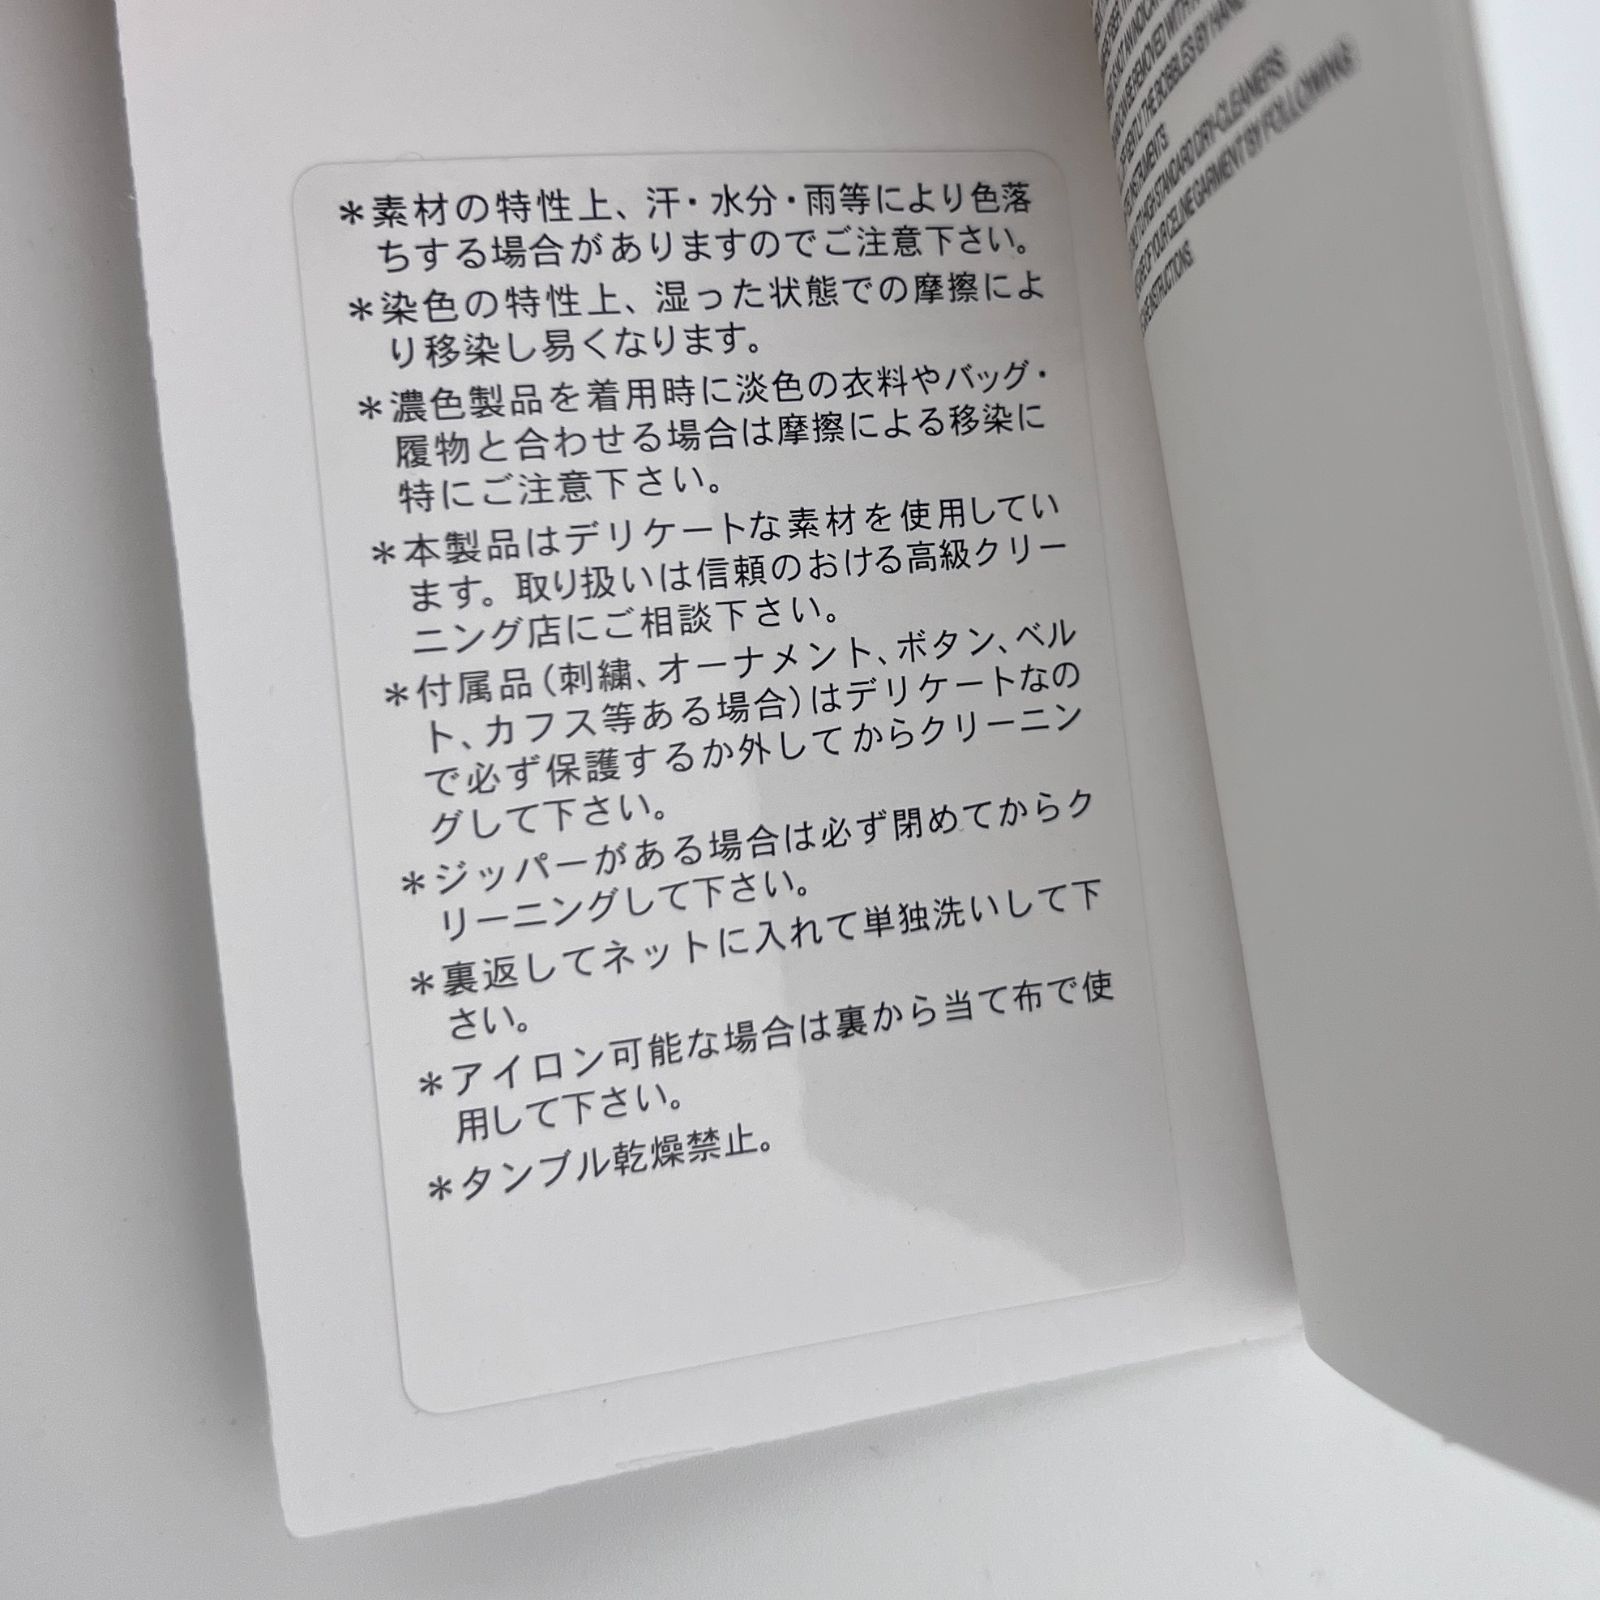 ＊素材の特性上、汗・水分・雨等により色落
ちする場合がありますのでご注意下さい。
＊染色の特性上、湿った状態での摩擦によ
り移染し易くなります。
＊濃色製品を着用時に淡色の衣料やバッグ・
履物と合わせる場合は摩擦による移染に
特にご注意下さい。
＊本製品はデリケートな素材を使用してい
ます。取り扱いは信頼のおける高級クリー
ニング店にご相談下さい。
＊付属品(刺繍、オーナメント、ボタン、ベル
ト、カフス等ある場合)はデリケートなの
で必ず保護するか外してからクリーニン
グして下さい。
＊ジッパーがある場合は必ず閉めてからク
リーニングして下さい。
＊裏返してネットに入れて単独洗いして下
さい。
＊アイロン可能な場合は裏から当て布で使
用して下さい。
＊タンブル乾燥禁止。
CAN BE REMOVED WITH
GENTLY THE BOBBLES BY HAND
INSTRUMENTS.
TO HIGH STANDARD DRY-CLEANERS
OF YOUR CELINE GARMENT BY FOLLOWING
INSTRUCTIONS.